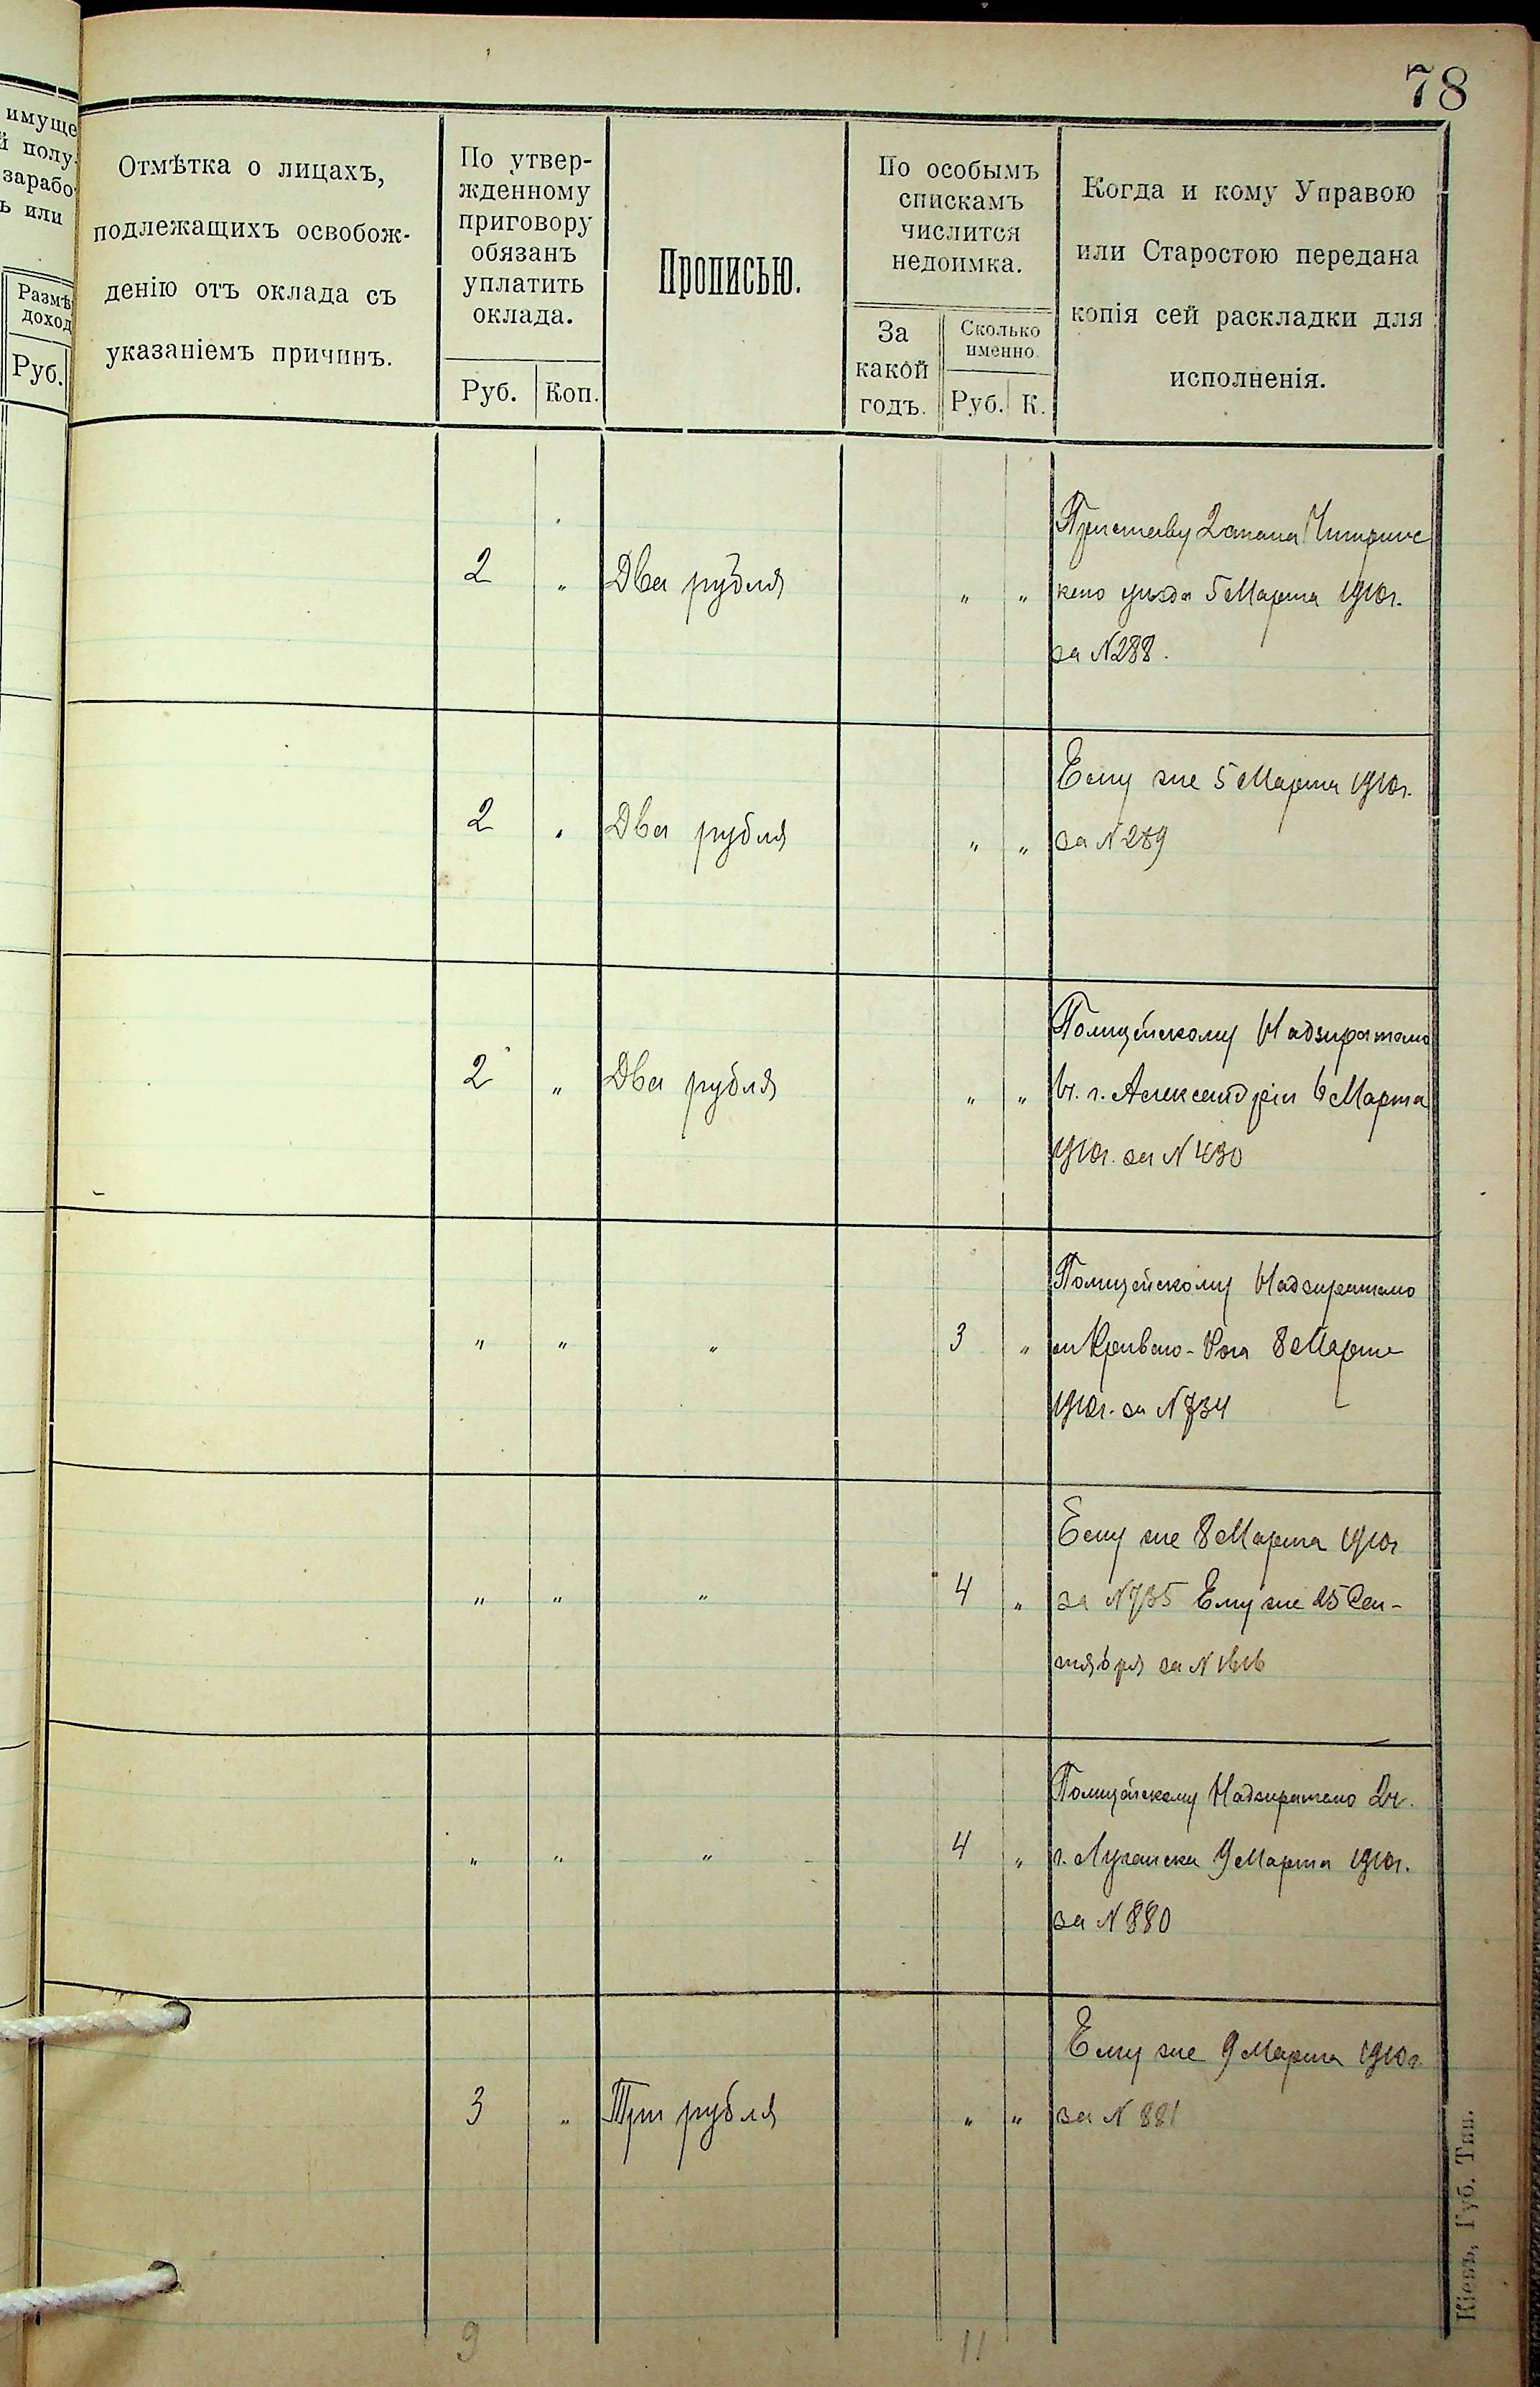 78
имуще
й полу-
зарабо
ь или
Размѣ
доход
Руб.
Отмѣтка о лицахъ,
подлежащихъ освобож-
денію отъ оклада съ
указаніемъ причинъ.
По утвер-
жденному
приговору
обязанъ
уплатить
оклада.
Руб. Коп.
Прописью.
По особымъ
спискамъ
числится
недоимка.
За
какой
годъ.
Сколько
именно.
Руб. К.
Когда и кому Управою
или Старостою передана
копія сей раскладки для
исполненія.
Приставу 2 стана Чигринс
2 " Два рубля " " каго уѣзда 5 Марта 1910г.
за N 288.
Ему же 5 Марта 1910г.
2 " Два рубля " " за N 289
Полицейскому Надзирателю
2 " Два рубля " " г. Александріи 6 Марта
1910г. за N 430
Полицейскому Надзирателю
" " " 3 " м Криваго-Рога 8 Марта
1910г. за N 734
Ему же 8 Марта 1910г
" " " 4 " за N 735 Ему же 25 Сен-
тября за N 1616
Полицейскому Надзирателю 2ч.
" " " 4 " г. Луганска 9 Марта 1910г.
за N 880
Ему же 9 Марта 1910г.
3 " Три рубля " " за N 881
9 11
Кіевъ, Губ. Тип.